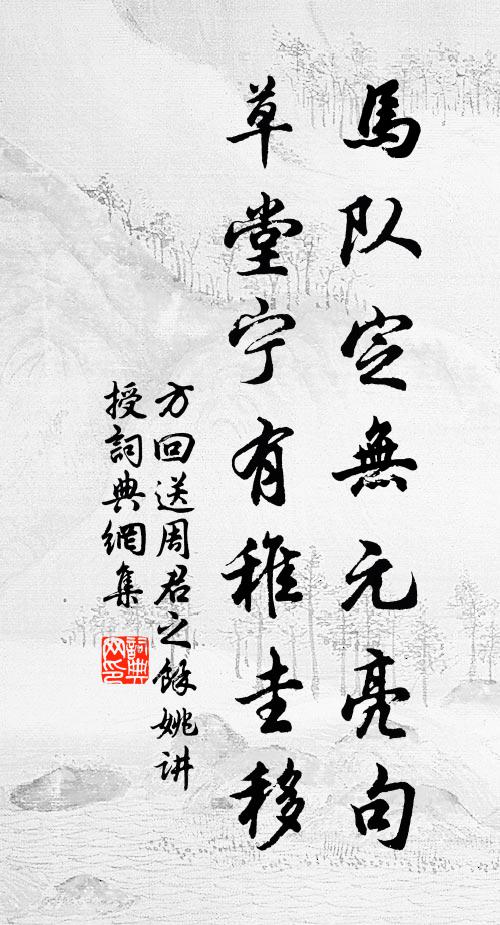 馬队定無元亮句
草堂宁有稚圭移
方回送周君之餘姚讲
授詞典網集
詞典
网印